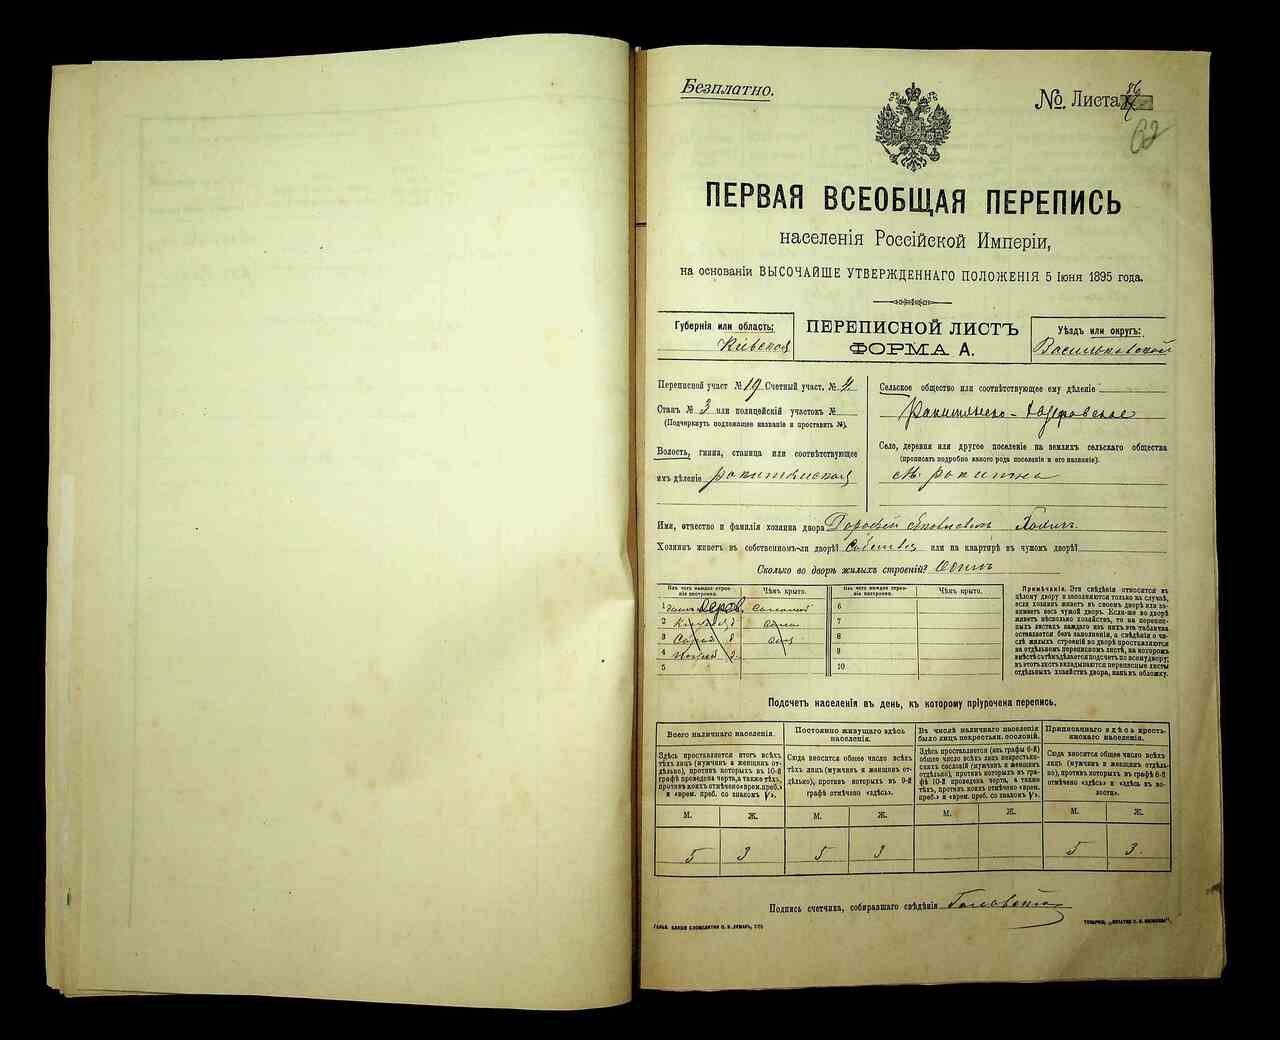 Безплатно.
№ Листа 86
62
ПЕРВАЯ ВСЕОБЩАЯ ПЕРЕПИСЬ
населенія Россійской Имперіи,
на основаніи ВЫСОЧАЙШЕ УТВЕРЖДЕННАГО ПОЛОЖЕНІЯ 5 Іюня 1895 года.
Губернія или область:
Кіевская
ПЕРЕПИСНОЙ ЛИСТЪ
ФОРМА А.
Уѣздъ или округъ:
Васильковской
Переписной участ. № 19 Счетный участ. № 4
Станъ № 3 или полицейскій участокъ №
(Подчеркнуть подлежащее названіе и проставить №).
Волость, гмина, станица или соотвѣтствующее
имъ дѣленіе Ракитянская
Сельское общество или соотвѣтствующее ему дѣленіе
Ракитянско-
Село, деревня или другое поселеніе на земляхъ сельскаго общества
(прописать подробно какого рода поселеніе и его названіе).
М. Ракитна
Имя, отчество и фамилія хозяина двора Дорофій Яковлевъ
Хозяинъ живетъ въ собственномъ-ли дворѣ? или на квартирѣ въ чужомъ дворѣ?
Сколько во дворѣ жилыхъ строеній? Одинъ
Изъ чего каждое строеніе построено.
Чѣмъ крыто.
Изъ чего каждое строеніе построено.
Чѣмъ крыто.
1 дерев. Соломой
2
3
4
5
6
7
8
9
10
Примѣчаніе. Эти свѣдѣнія относятся къ
цѣлому двору и заполняются только на случаѣ,
если хозяинъ живетъ въ своемъ дворѣ или занимаетъ
весь чужой дворъ. Если-же во дворѣ
живетъ нѣсколько хозяйствъ, то на переписныхъ
листахъ каждаго изъ нихъ эта табличка
оставляется безъ заполненія, а свѣдѣнія о числѣ
жилыхъ строеній во дворѣ проставляются
на отдѣльномъ переписномъ листѣ, на которомъ
вмѣстѣ съ тѣмъ дѣлается подсчетъ по всему двору;
въ этотъ листъ вкладываются переписные листы
отдѣльныхъ хозяйствъ двора, какъ въ обложку.
Подсчетъ населенія въ день, къ которому пріурочена перепись.
Всего наличнаго населенія.
Здѣсь проставляется итогъ всѣхъ
тѣхъ лицъ (мужчинъ и женщинъ отдѣльно),
противъ которыхъ въ 10-й
графѣ проведена черта, а также тѣхъ,
противъ коихъ отмѣчено «врем. преб.»
и «врем. преб. со знакомъ V».
Постоянно живущаго здѣсь
населенія.
Сюда вносится общее число всѣхъ
тѣхъ лицъ (мужчинъ и женщинъ отдѣльно),
противъ которыхъ въ 9-й
графѣ отмѣчено «здѣсь».
Въ числѣ наличнаго населенія
было лицъ некрестьян. сословій.
Здѣсь проставляется (изъ графы 6-й)
общее число всѣхъ лицъ некрестьянскихъ
сословій (мужчинъ и женщинъ
отдѣльно), противъ которыхъ въ графѣ
10-й проведена черта, а также
тѣхъ, противъ коихъ отмѣчено «врем.
преб.» и «врем. преб. со знакомъ V».
Приписаннаго здѣсь крестьянскаго
населенія.
Сюда вносится общее число всѣхъ
лицъ (мужчинъ и женщинъ отдѣльно),
противъ которыхъ въ графѣ 8-й
отмѣчено «здѣсь» и «здѣсь въ волости».
М. Ж. М. Ж. М. Ж. М. Ж.
5 3 5 3 5 3.
Подпись счетчика, собиравшаго свѣдѣнія